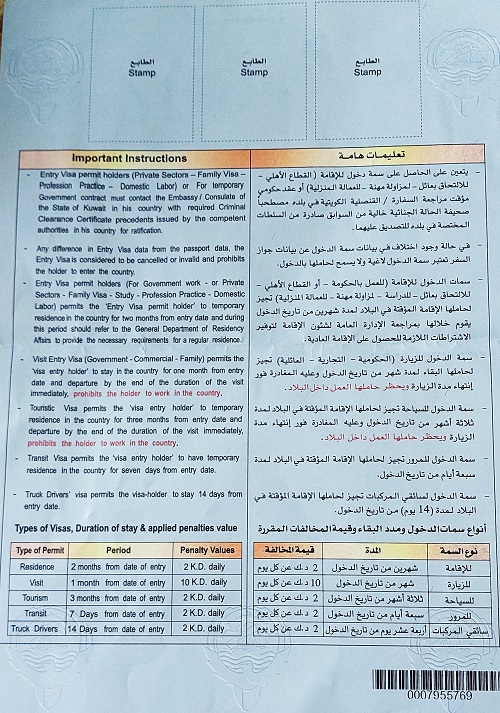 الطابع
Stamp
الطابع
Stamp
الطابع
Stamp
Important Instructions
- Entry Visa permit holders (Private Sectors – Family Visa –
Profession Practice – Domestic Labor) or For temporary
Government contract must contact the Embassy / Consulate of
the State of Kuwait in his country with required Criminal
Clearance Certificate precedents issued by the competent
authorities in his country for ratification.
- Any difference in Entry Visa data from the passport data, the
Entry Visa is considered to be cancelled or invalid and prohibits
the holder to enter the country.
- Entry Visa permit holders (For Government work - or Private
Sectors - Family Visa - Study - Profession Practice - Domestic
Labor) permits the 'Entry Visa permit holder' to temporary
residence in the country for two months from entry date and during
this period should refer to the General Department of Residency
Affairs to provide the necessary requirements for a regular residence.
- Visit Entry Visa (Government - Commercial - Family) permits the
'Visa entry holder' to stay in the country for one month from entry
date and departure by the end of the duration of the visit
immediately, prohibits the holder to work in the country.
- Touristic Visa permits the 'Visa entry holder' to temporary
residence in the country for three months from entry date and
departure by the end of the duration of the visit immediately,
prohibits the holder to work in the country.
- Transit Visa permits the 'visa entry holder' to have temporary
residence in the country for seven days from entry date.
- Truck Drivers' visa permits the visa-holder to stay 14 days from
entry date.
تعليمات هامة
- يتعين على الحاصل على سمة دخول للإقامة (القطاع الأهلي -
للالتحاق بعائل - لمزاولة مهنة - للعمالة المنزلية) أو عقد حكومي
مؤقت مراجعة السفارة / القنصلية الكويتية في بلده مصطحباً
صحيفة الحالة الجنائية خالية من السوابق صادرة من السلطات
المختصة في بلده للتصديق عليهما.
- في حالة وجود اختلاف في بيانات سمة الدخول عن بيانات جواز
السفر تعتبر سمة الدخول لاغية ولا يسمح لحاملها بالدخول.
- سمات الدخول للإقامة (للعمل بالحكومة - أو القطاع الأهلي -
للالتحاق بعائل - للدراسة - لمزاولة مهنة - للعمالة المنزلية) تجيز
لحاملها الإقامة المؤقتة في البلاد لمدة شهرين من تاريخ الدخول
يقوم خلالها بمراجعة الإدارة العامة لشئون الإقامة لتوفير
الاشتراطات اللازمة للحصول على الإقامة العادية.
- سمة الدخول للزيارة (الحكومية - التجارية - العائلية) تجيز
لحاملها البقاء لمدة شهر من تاريخ الدخول وعليه المغادرة فور
إنتهاء مدة الزيارة ويحظر حاملها العمل داخل البلاد.
- سمة الدخول للسياحة تجيز لحاملها الإقامة المؤقتة في البلاد لمدة
ثلاثة أشهر من تاريخ الدخول وعليه المغادرة فور إنتهاء مدة
الزيارة ويحظر حاملها العمل داخل البلاد.
- سمة الدخول للمرور تجيز لحاملها الإقامة المؤقتة في البلاد لمدة
سبعة أيام من تاريخ الدخول.
- سمة الدخول لسائقي المركبات تجيز لحاملها الإقامة المؤقتة في
البلاد لمدة (14 يوم) من تاريخ الدخول.
Types of Visas, Duration of stay & applied penalties value
Type of Permit Period Penalty Values
Residence 2 months from date of entry 2 K.D. daily
Visit 1 month from date of entry 10 K.D. daily
Tourism 3 months from date of entry 2 K.D. daily
Transit 7 Days from date of entry 2 K.D. daily
Truck Drivers 14 Days from date of entry 2 K.D. daily
أنواع سمات الدخول ومدد البقاء وقيمة المخالفات المقررة
نوع السمة المدة قيمة المخالفة
للإقامة شهرين من تاريخ الدخول 2 د.ك عن كل يوم
للزيارة شهر من تاريخ الدخول 10 د.ك عن كل يوم
للسياحة ثلاثة أشهر من تاريخ الدخول 2 د.ك عن كل يوم
للمرور سبعة أيام من تاريخ الدخول 2 د.ك عن كل يوم
سائقي المركبات أربعة عشر يوم من تاريخ الدخول 2 د.ك عن كل يوم
0007955769